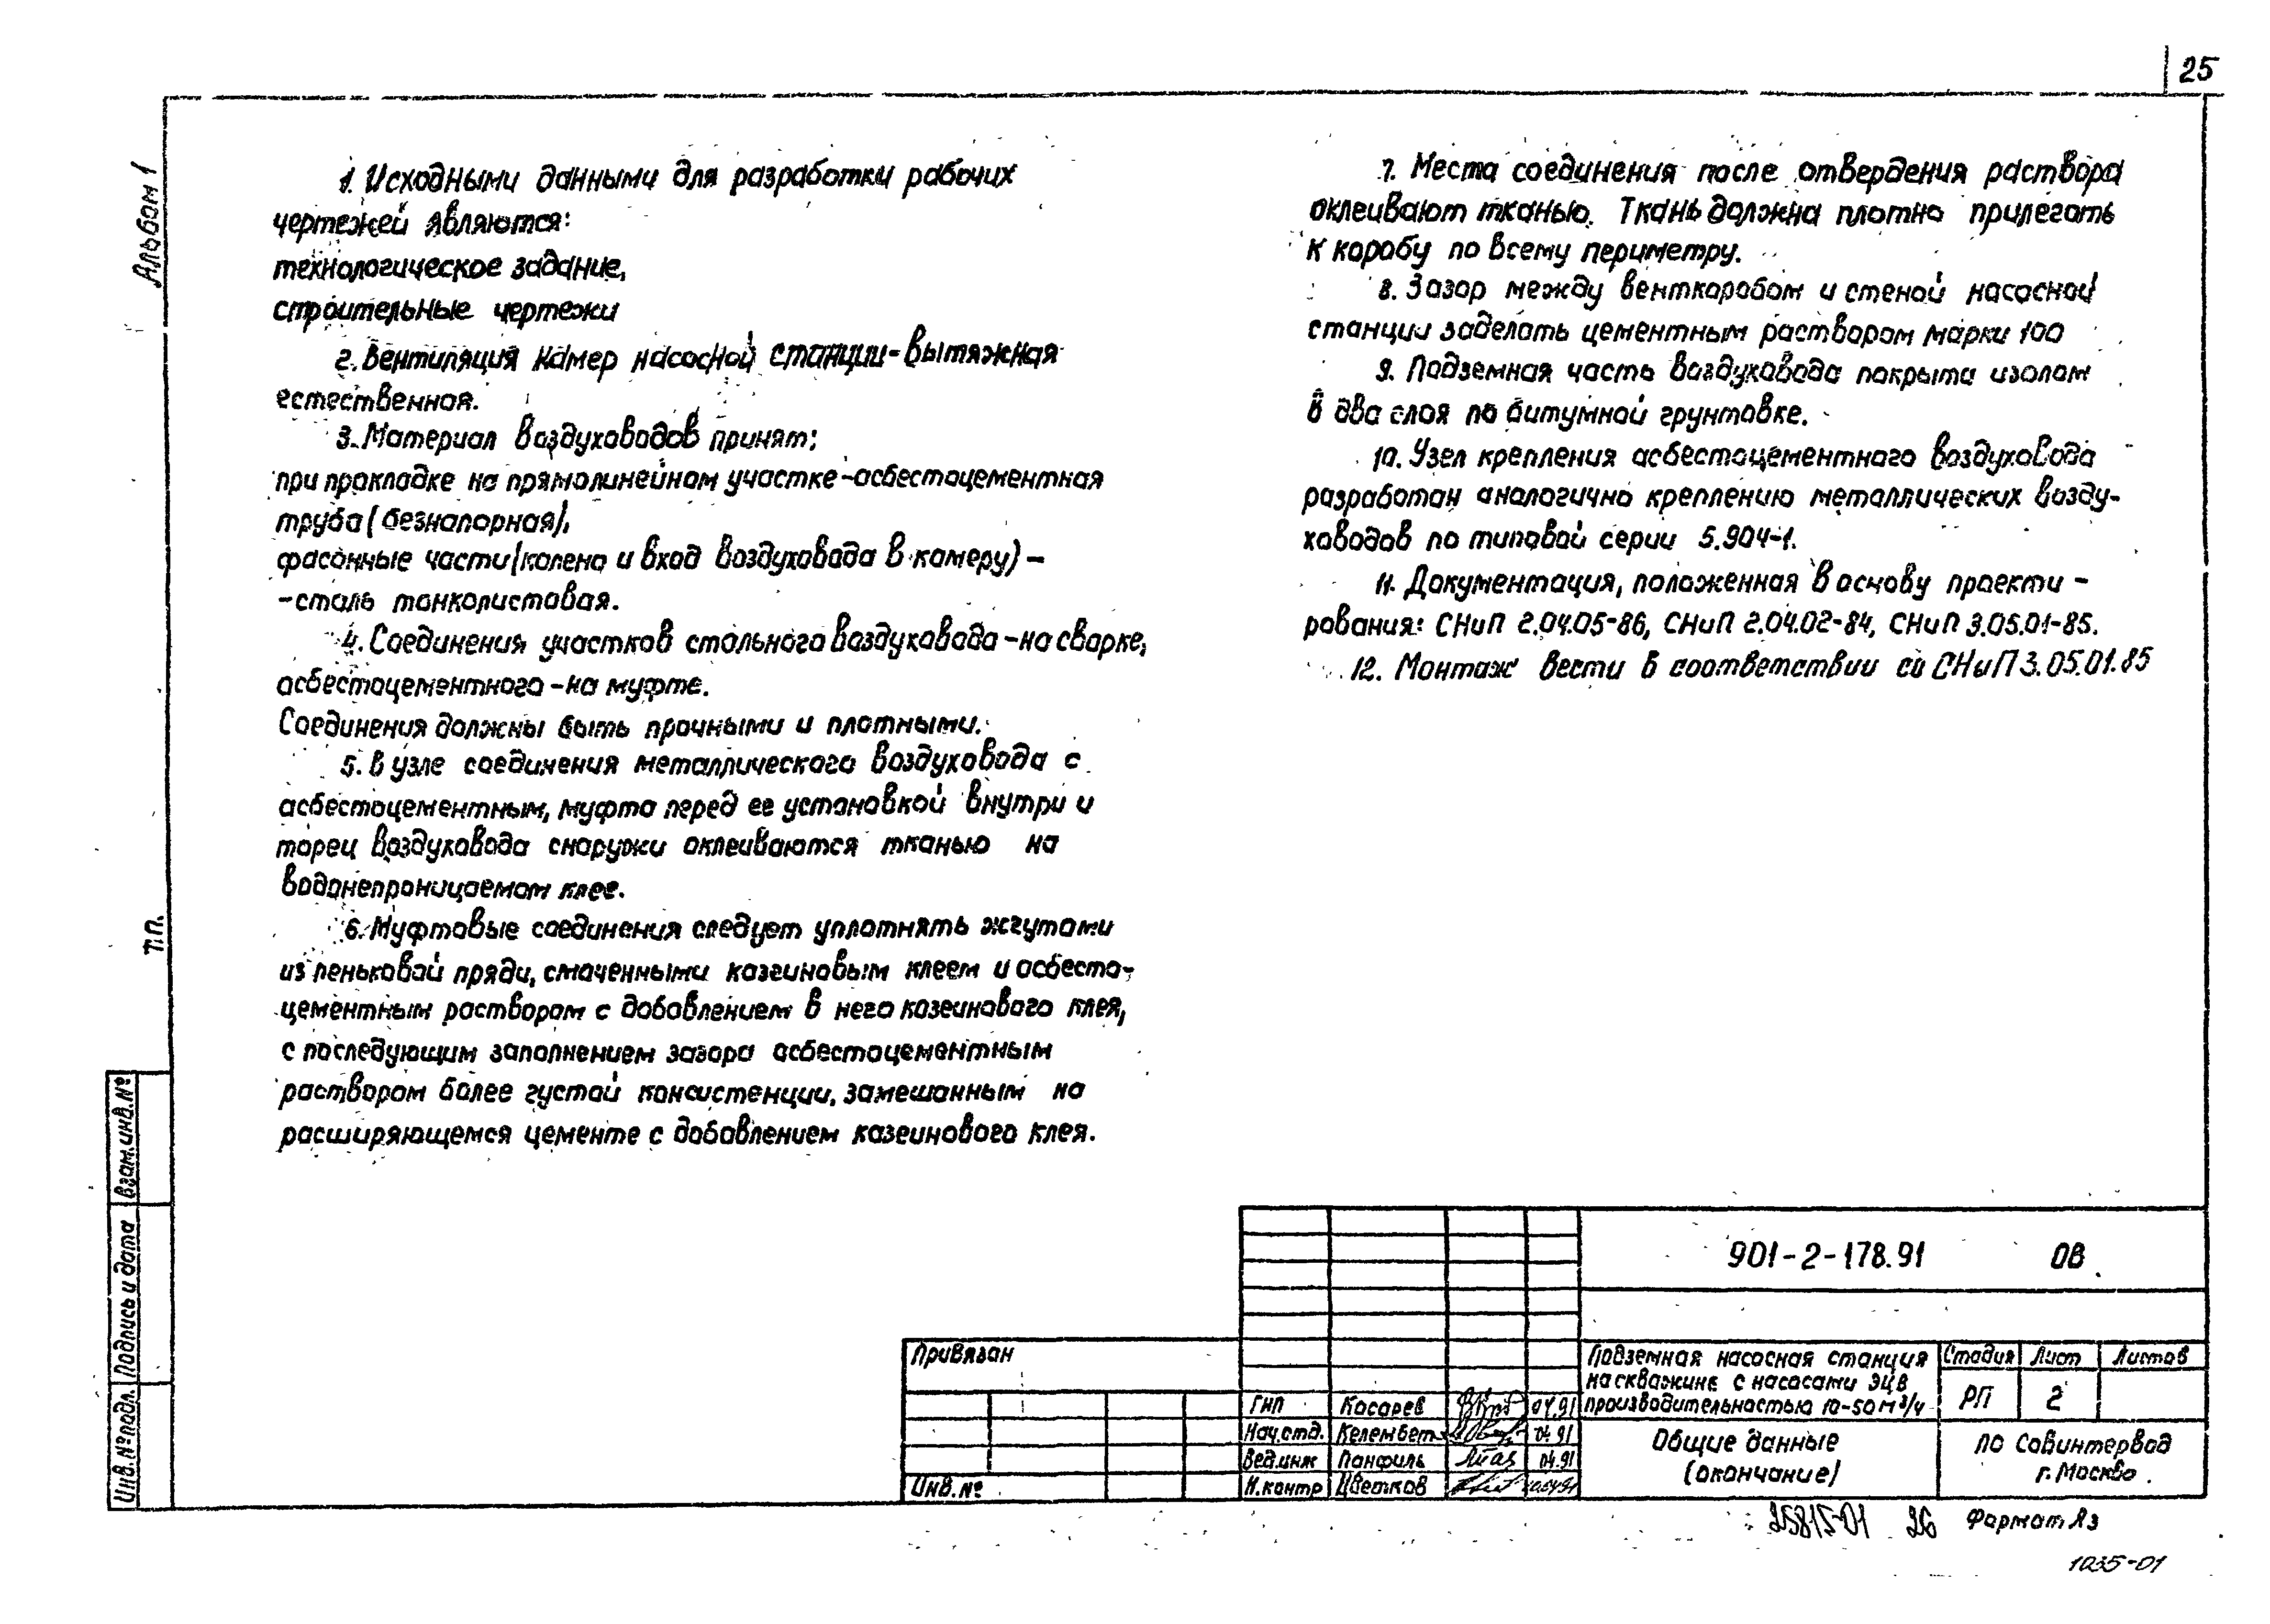 25
Альбом 1
1. Исходными данными для разработки рабочих
чертежей являются:
технологическое задание,
строительные чертежи
2. Вентиляция камер насосной станции - вытяжная
естественная.
3. Материал воздуховодов принят:
при прокладке на прямолинейном участке - асбестоцементная
труба (безнапорная),
фасонные части (колено и вход воздуховода в камеру) -
- сталь тонколистовая.
4. Соединения участков стального воздуховода - на сварке,
асбестоцементного - на муфте.
Соединения должны быть прочными и плотными.
5. В узле соединения металлического воздуховода с
асбестоцементным, муфта перед ее установкой внутри и
торец воздуховода снаружи оклеиваются тканью на
водонепроницаемом клее.
6. Муфтовые соединения следует уплотнять жгутами
из пеньковой пряди, смоченными казеиновым клеем и асбесто-
цементным раствором с добавлением в него казеинового клея,
с последующим заполнением зазора асбестоцементным
раствором более густой консистенции, замешанным на
расширяющемся цементе с добавлением казеинового клея.
7. Места соединения после отвердения раствора
оклеивают тканью. Ткань должна плотно прилегать
к коробу по всему периметру.
8. Зазор между венткоробом и стеной насосной
станции заделать цементным раствором марки 100
9. Подземная часть воздуховода покрыта изолом
в два слоя по битумной грунтовке.
10. Узел крепления асбестоцементного воздуховода
разработан аналогично креплению металлических возду-
ховодов по типовой серии 5.904-1.
11. Документация, положенная в основу проекти-
рования: СНиП 2.04.05-86, СНиП 2.04.02-84, СНиП 3.05.01-85.
12. Монтаж вести в соответствии со СНиП 3.05.01.85
Т.П.
Взам.инв.№
Подпись и дата
Инв.№ подл.
901-2-178.91 ОВ
Привязан
Инв.№
ГИП Косарев 04.91
Нач.отд. Келембет 04.91
Вед.инж Панфиль 04.91
Н.контр Цветков
Подземная насосная станция
на скважине с насосами ЭЦВ
производительностью 10-50 м³/ч
Стадия Лист Листов
РП 2
Общие данные
(окончание)
ПО Совинтервод
г. Москва
25815-01 26 Формат А3
1035-01